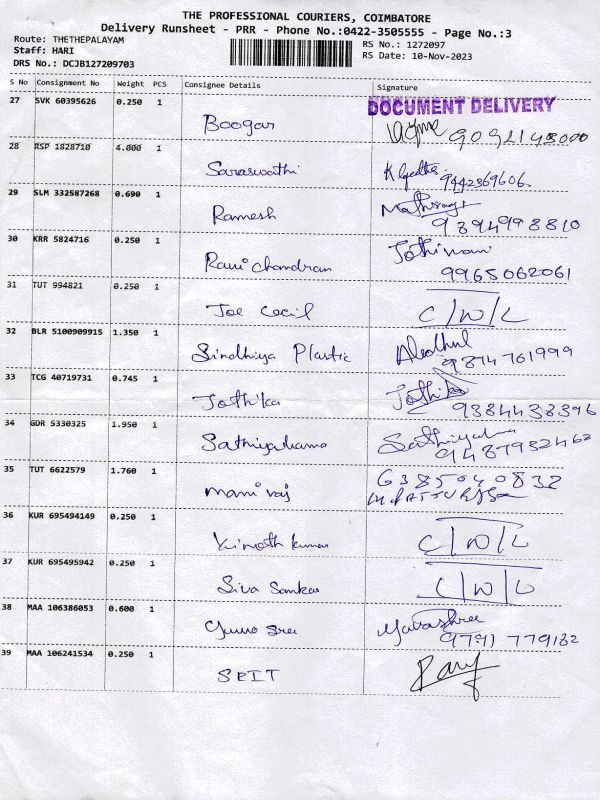 THE PROFESSIONAL COURIERS, COIMBATORE
Delivery Runsheet - PRR - Phone No.:0422-3505555 - Page No.:3
Route: THETHEPALAYAM
RS No.: 1272097
Staff: HARI
RS Date: 10-Nov-2023
DRS No.: DCJB127209703
S No Consignment No Weight PCS Consignee Details Signature
27 SVK 60395626 0.250 1
DOCUMENT DELIVERY
Boogar
28 RSP 1828710 4.000 1
Saraswathi
9442369606
29 SLM 332587268 0.690 1
Ramesh
9394998810
30 KRR 5824716 0.250 1 Jothimani
Rani chandran 9965062061
31 TUT 994821 0.250 1
Joe Cecil C/W/L
32 BLR 5100909915 1.350 1
Sindhiya Plastic
9874761999
33 TCG 40719731 0.745 1
Jothika Jothika
9384438396
34 GDR 5330325 1.950 1
9487932462
35 TUT 6622579 1.760 1 6385040832
mani raj
36 KUR 695494149 0.250 1
Vinoth kumar C/W/L
37 KUR 695495942 0.250 1
Siva Sankar C/W/L
38 MAA 106386053 0.600 1
9791 779182
39 MAA 106241534 0.250 1
SRIT